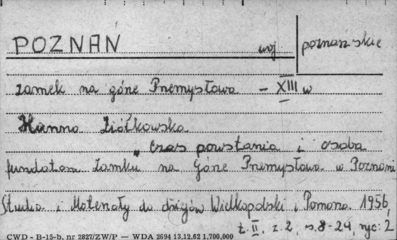 POZNAŃ woj poznańskie
zamek na górze Przemysława – XIII w
Hanna Ziółkowska
„Czas powstania i osoba
fundatora zamku na Górze Przemysława w Poznaniu
Studia i Materiały do dziejów Wielkopolski i Pomorza 1956,
t. II, z. 2, s. 8-24, ryc. 2
CWD - B-15-b, nr 2827/ZW/P — WDA 2694 13.12.62 1.700.000